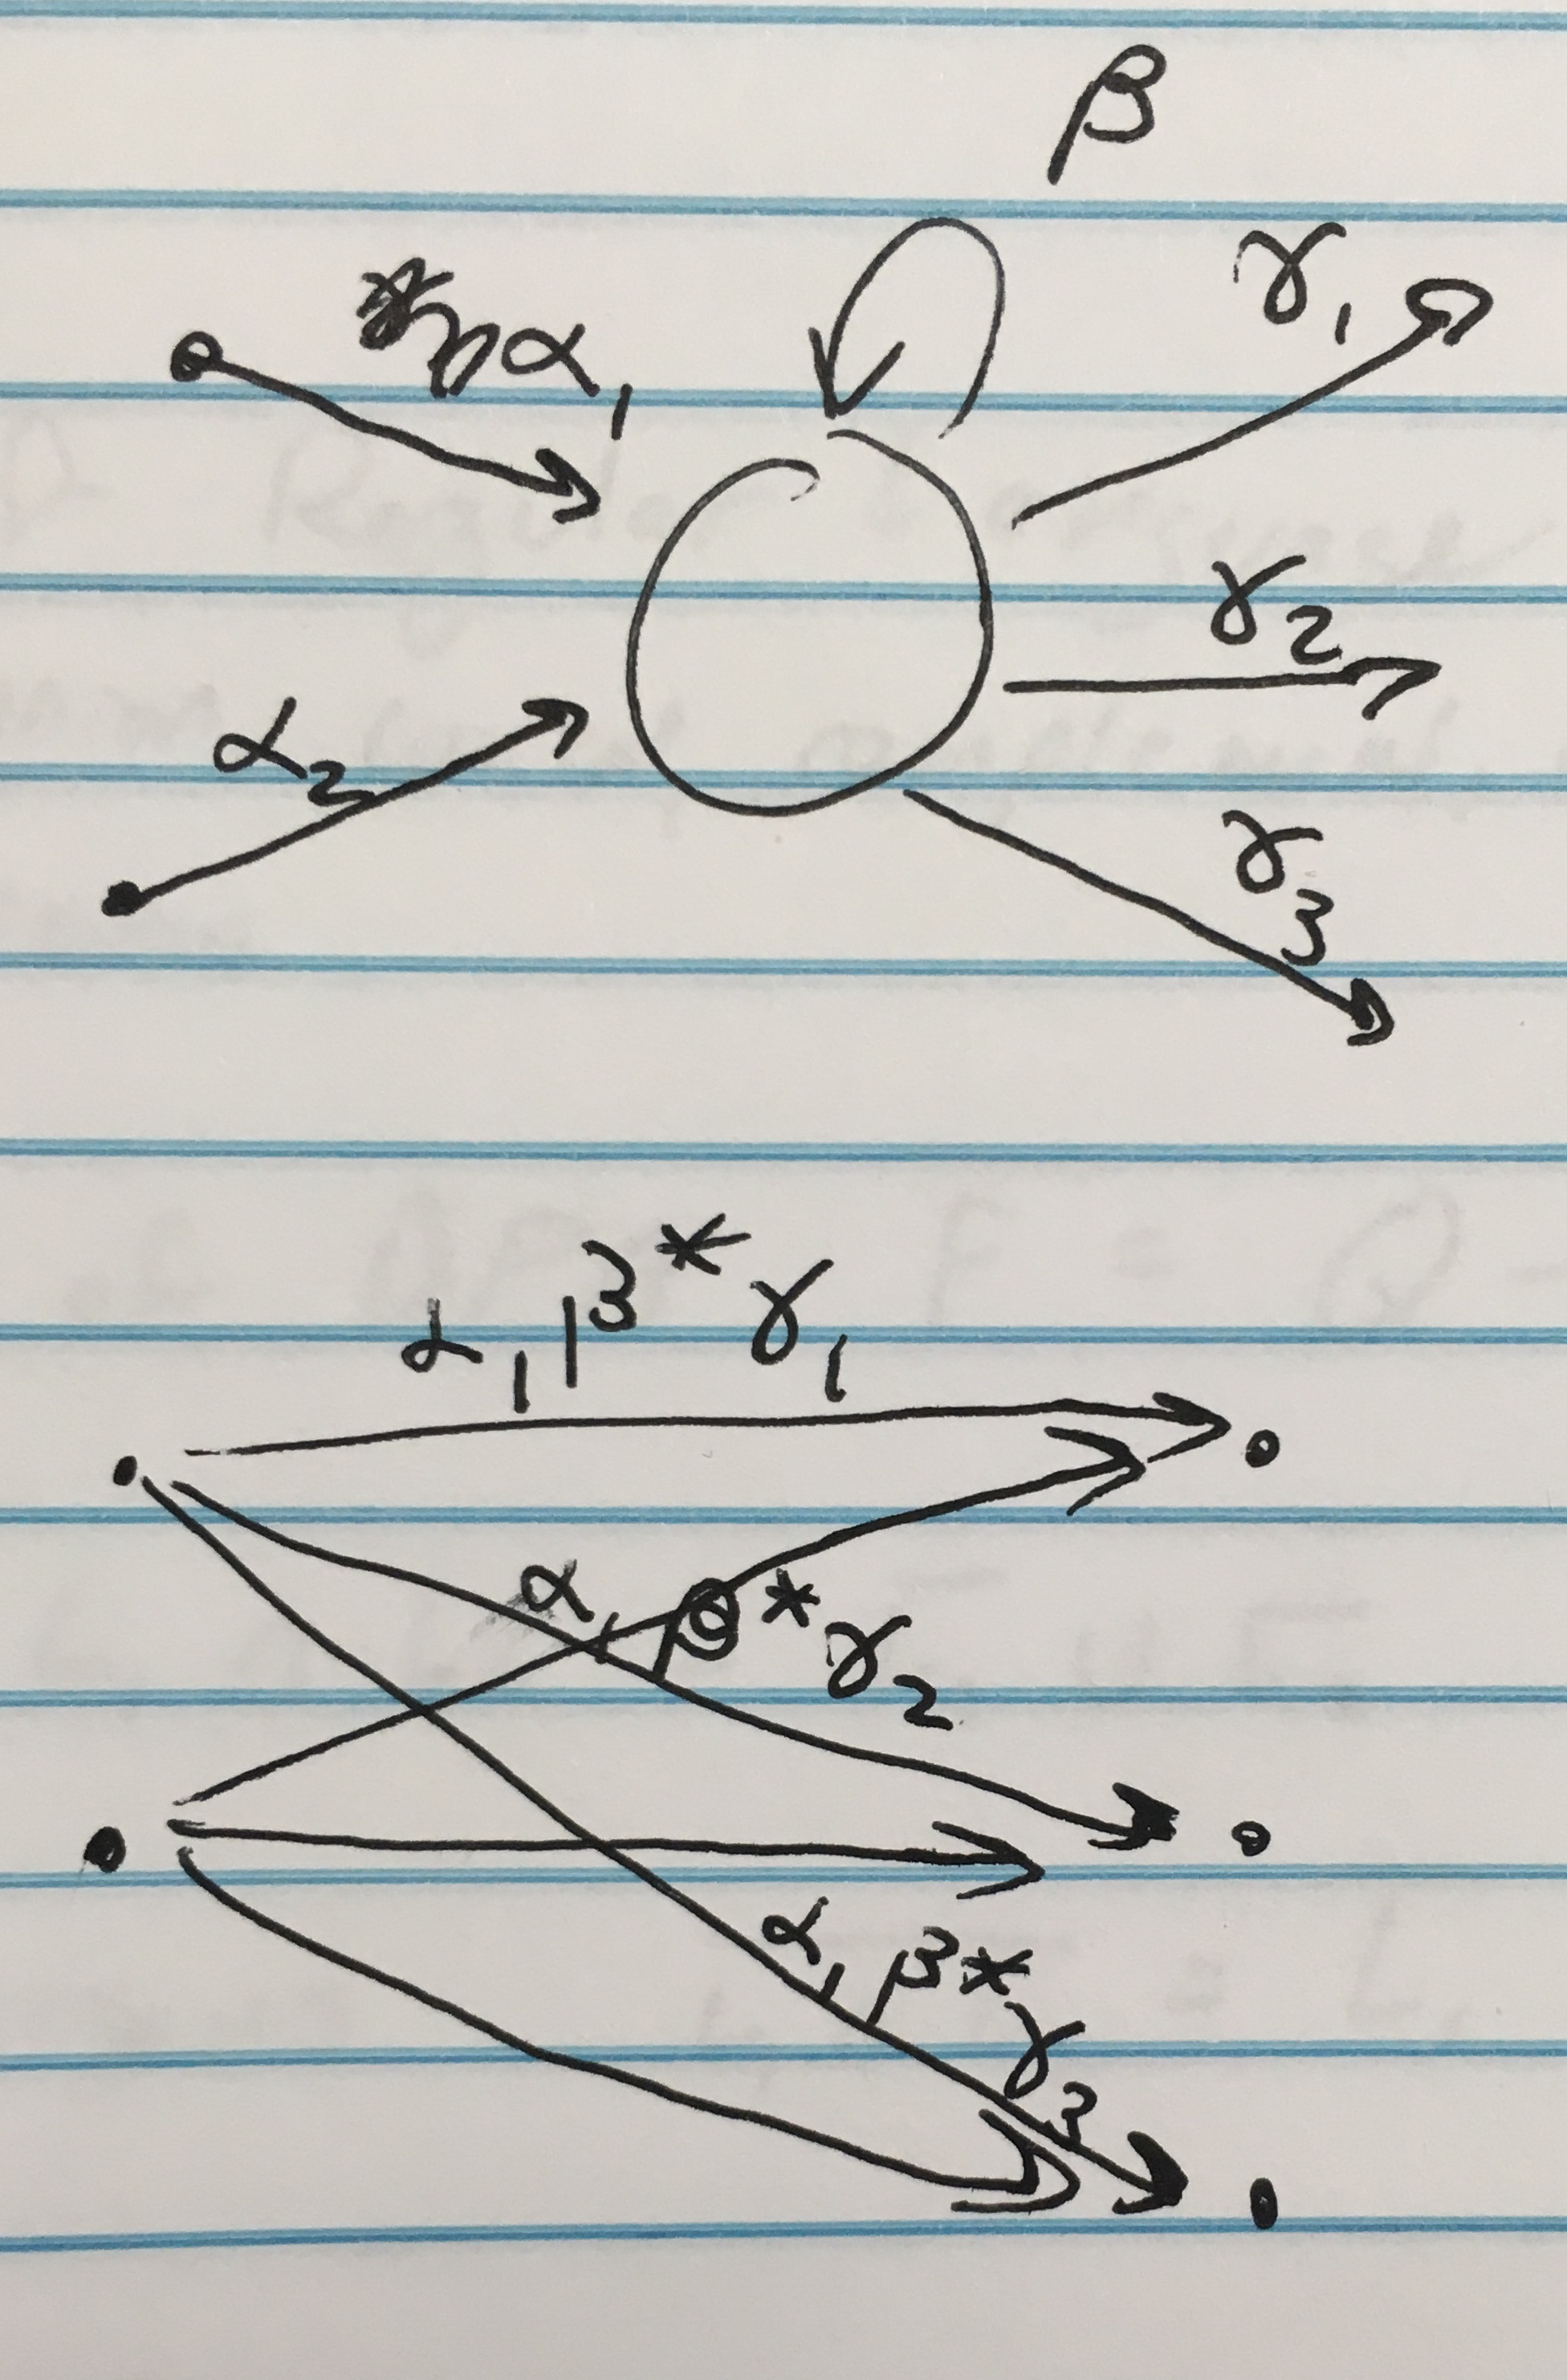 β
γ₁
α₁
γ₂
α₂
γ₃
α₁β*γ₁
α₁β*γ₂
α₁β*γ₃